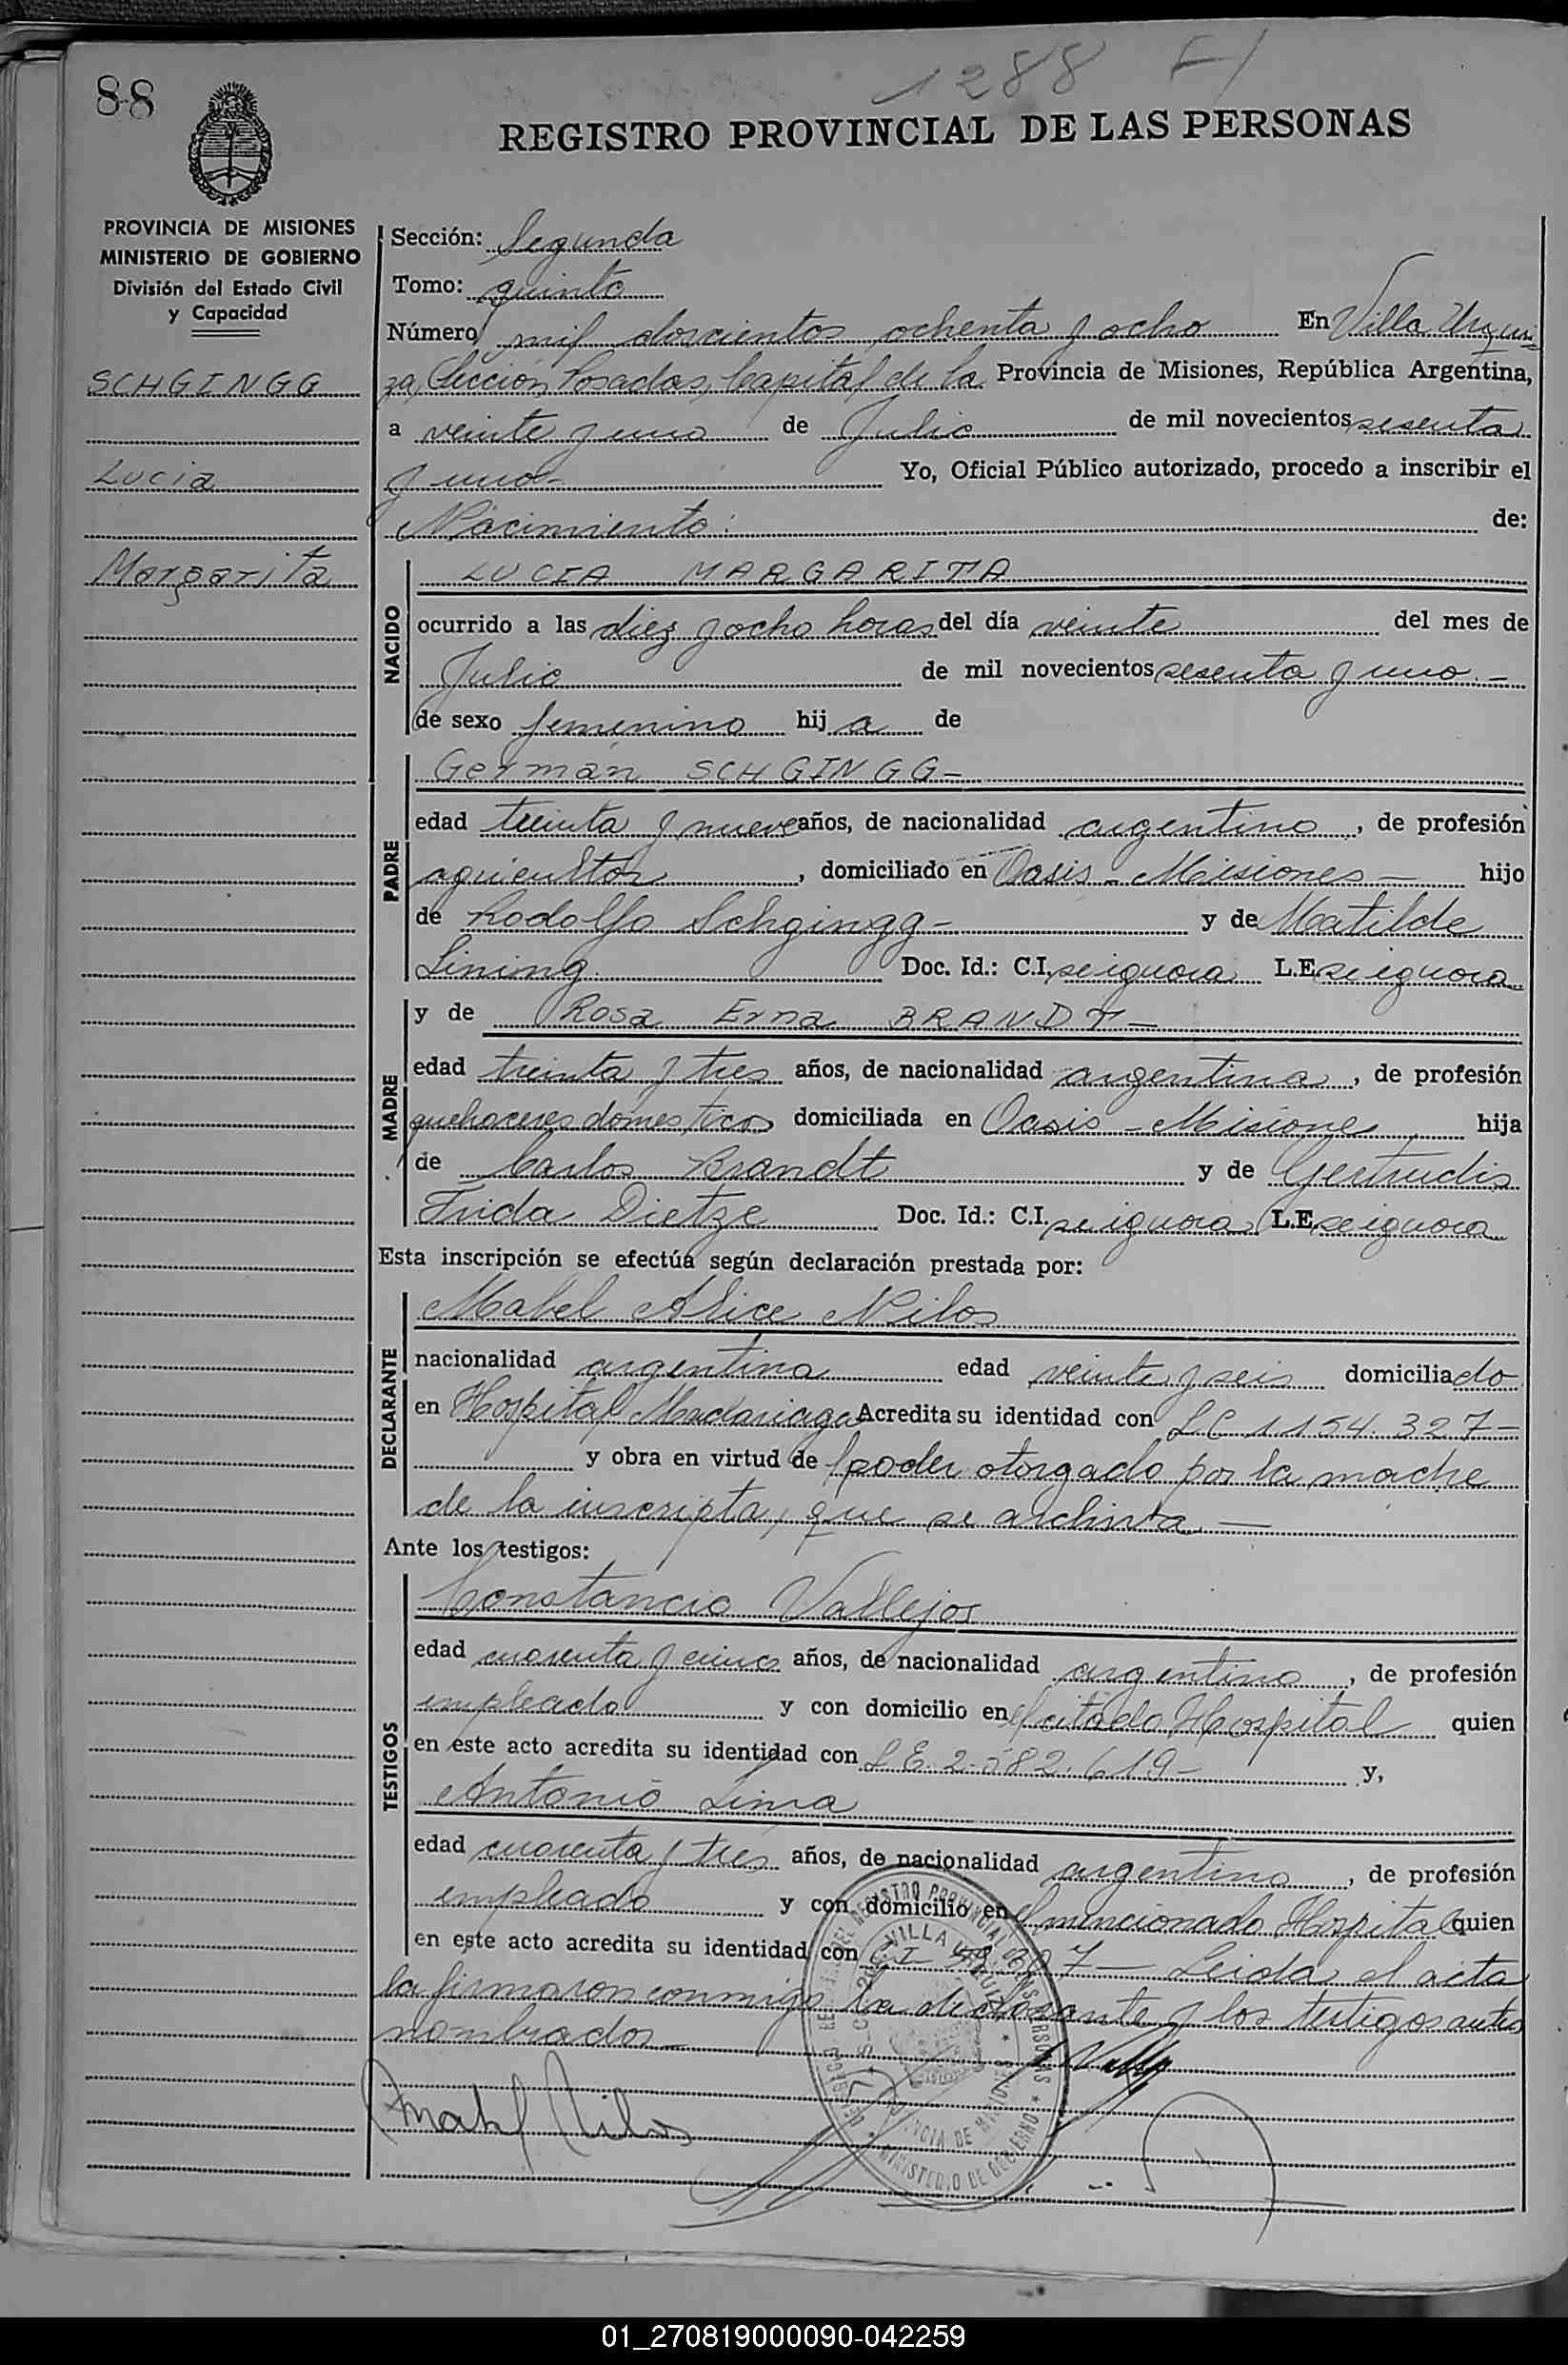 88
1288 F/
REGISTRO PROVINCIAL DE LAS PERSONAS
PROVINCIA DE MISIONES
MINISTERIO DE GOBIERNO
División del Estado Civil
y Capacidad
SCHGINGG
Lucia
Margarita
Sección: Segunda
Tomo: quinto
Número mil doscientos ochenta y ocho En Villa Urqui-
za, Sección Posadas, Capital de la Provincia de Misiones, República Argentina,
a veinte y uno de Julio de mil novecientos sesenta
y uno- Yo, Oficial Público autorizado, procedo a inscribir el
Nacimiento: de:
NACIDO
LUCIA MARGARITA
ocurrido a las diez y ocho horas del día veinte del mes de
Julio de mil novecientos sesenta y uno.-
de sexo femenino hij a de
PADRE
Germán SCHGINGG-
edad treinta y nueve años, de nacionalidad argentino, de profesión
agricultor, domiciliado en Oasis - Misiones - hijo
de Rodolfo Schgingg- y de Matilde
Lining Doc. Id.: C.I. se ignora L.E. se ignora
MADRE
y de Rosa Erna BRANDT-
edad treinta y tres años, de nacionalidad argentina, de profesión
quehaceres domesticos domiciliada en Oasis - Misiones hija
de Carlos Brandt y de Gertrudis
Frida Dietze Doc. Id.: C.I. se ignora L.E. se ignora
Esta inscripción se efectúa según declaración prestada por:
DECLARANTE
Mabel Alice Nilos
nacionalidad argentina edad veinte y seis domiciliado
en Hospital Madariaga Acredita su identidad con L.C. 1.154.327-
y obra en virtud de poder otorgado por la madre
de la inscripta, que se archiva.-
Ante los testigos:
TESTIGOS
Constancio Vallejos
edad cuarenta y cinco años, de nacionalidad argentino, de profesión
empleado y con domicilio en el citado Hospital quien
en este acto acredita su identidad con L.E. 2.582.619- y,
Antonio Lima
edad cuarenta y tres años, de nacionalidad argentino, de profesión
empleado y con domicilio en el mencionado Hospital quien
en este acto acredita su identidad con C.I. Leida el acta
la firmaron conmigo la declarante y los testigos antes
nombrados-
Mabel Nilos
01_270819000090-042259